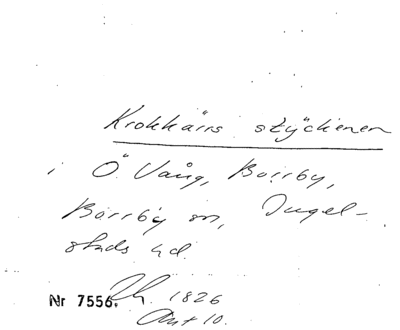 Krokkärrs styckenen
i Ö. Vång, Borrby,
Borrby sn, Ingel-
stads hd.
Nr 7556. Lh. 1826
Akt 10.